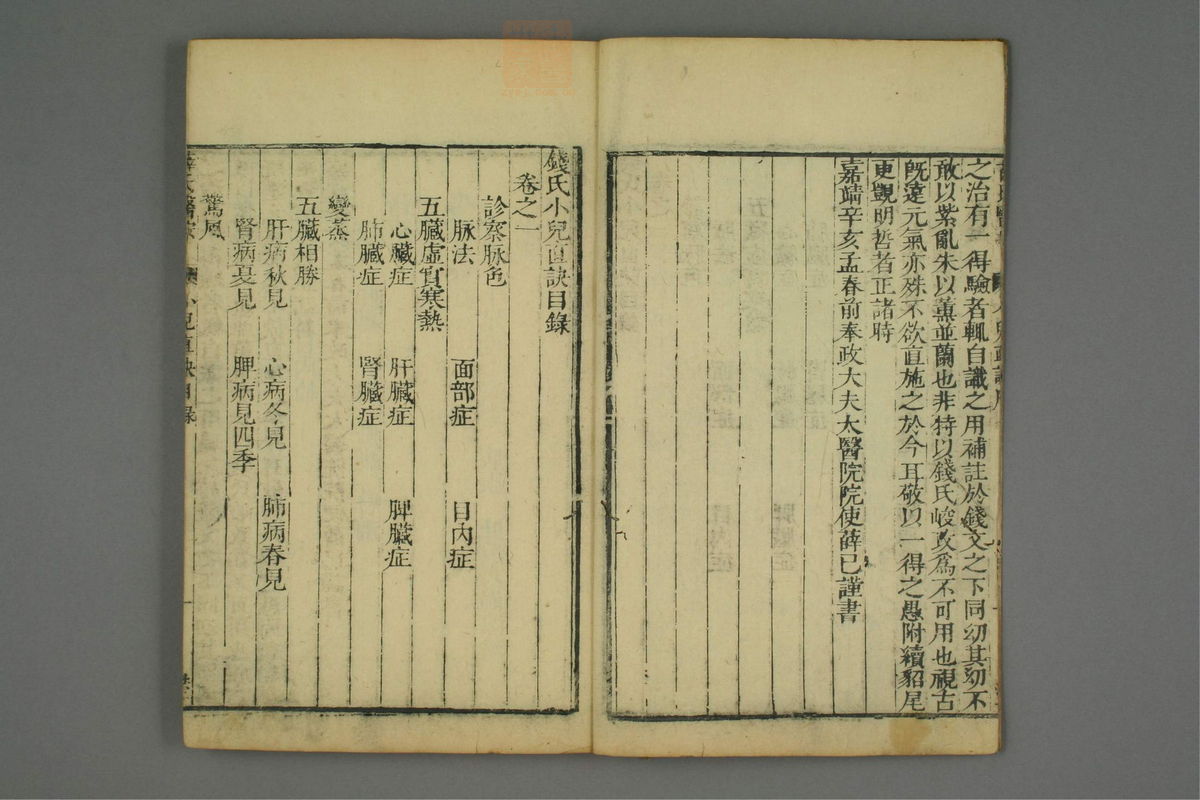 之治有一得驗者輒自識之用補註於錢文之下同幼其幼不
敢以紫亂朱以薰並蘭也非特以錢氏峻攻為不可用也視古
旣遠元氣亦殊不欲直施之於今耳敬以一得之愚附續貂尾
更覬明哲者正諸時
嘉靖辛亥孟春前奉政大夫太醫院院使薛已謹書
錢氏小兒直訣目錄
卷之一
診察脉色
脉法 面部症 目內症
五臟虛實寒熱
心臟症 肝臟症 脾臟症
肺臟症 腎臟症
變蒸
五臟相勝
肝病秋見 心病冬見 肺病春見
腎病夏見 脾病見四季
驚風
小兒直訣目錄 一